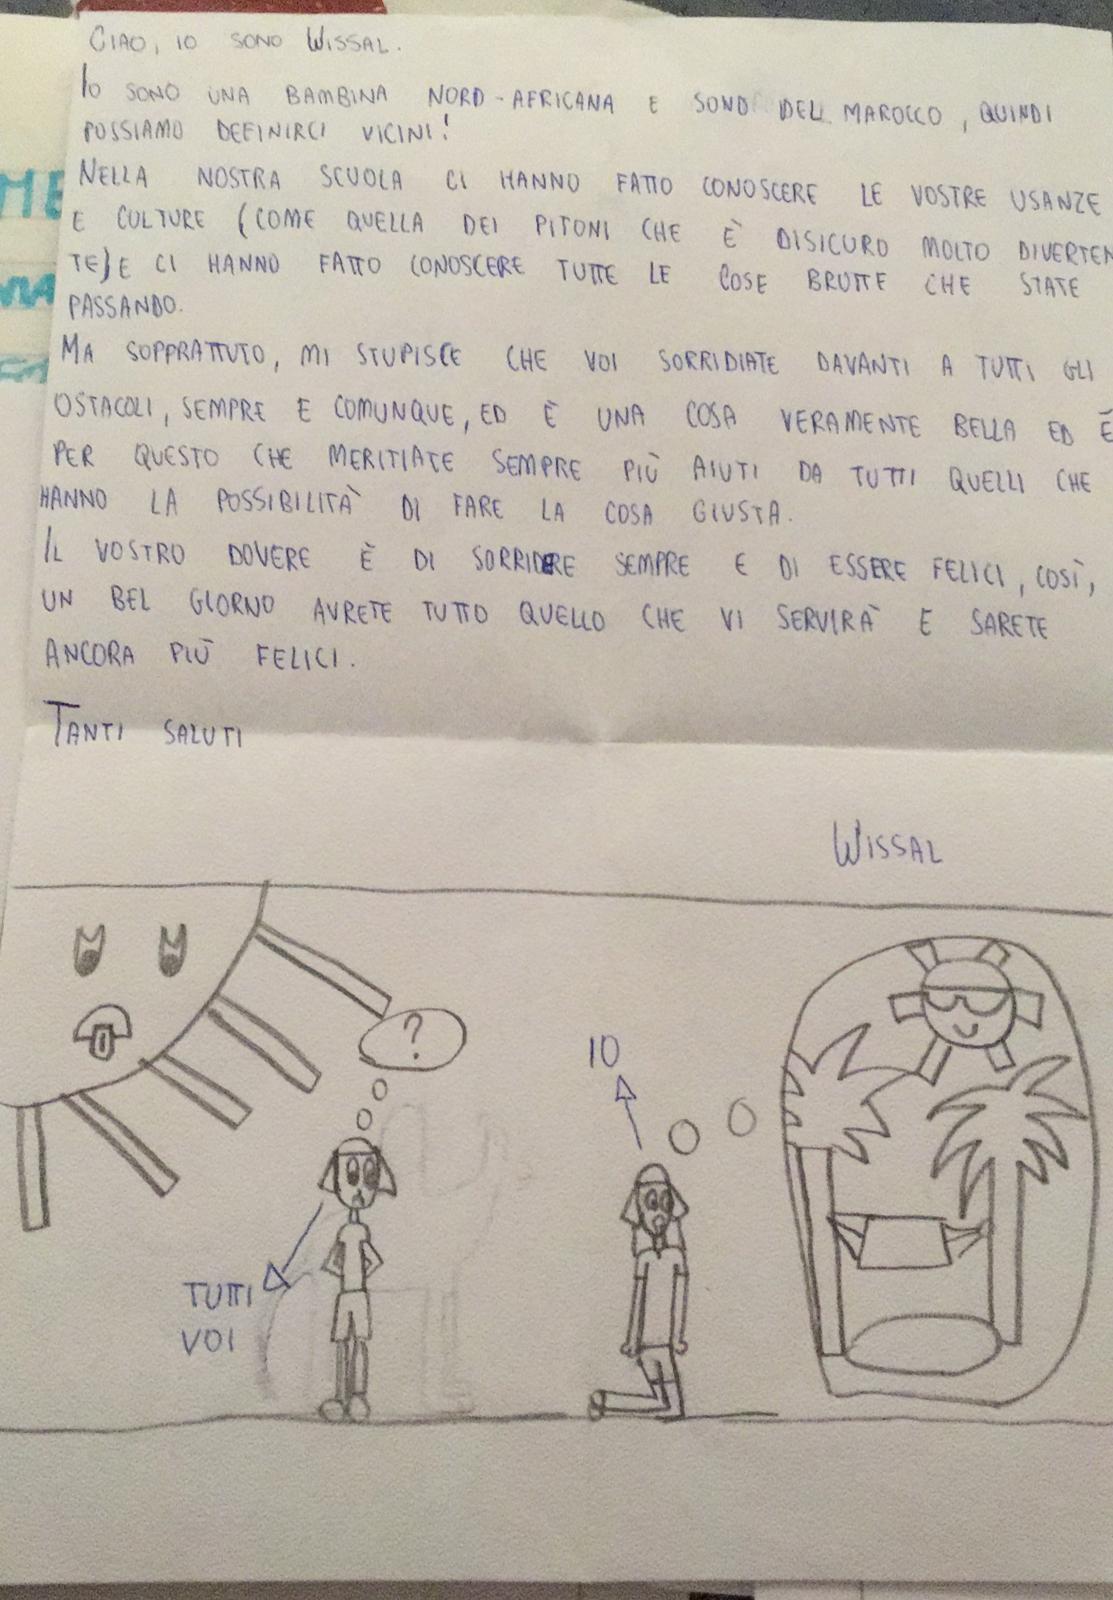 CIAO, IO SONO WISSAL.
IO SONO UNA BAMBINA NORD-AFRICANA E SONO DEL MAROCCO, QUINDI
POSSIAMO DEFINIRCI VICINI!
NELLA NOSTRA SCUOLA CI HANNO FATTO CONOSCERE LE VOSTRE USANZE
E CULTURE (COME QUELLA DEI PITONI CHE È DISICURO MOLTO DIVERTEN
TE) E CI HANNO FATTO CONOSCERE TUTTE LE COSE BRUTTE CHE STATE
PASSANDO.
MA SOPPRATTUTO, MI STUPISCE CHE VOI SORRIDIATE DAVANTI A TUTTI GLI
OSTACOLI, SEMPRE E COMUNQUE, ED È UNA COSA VERAMENTE BELLA ED È
PER QUESTO CHE MERITIATE SEMPRE PIÙ AIUTI DA TUTTI QUELLI CHE
HANNO LA POSSIBILITÀ DI FARE LA COSA GIUSTA.
IL VOSTRO DOVERE È DI SORRIDERE SEMPRE E DI ESSERE FELICI, COSÌ,
UN BEL GIORNO AVRETE TUTTO QUELLO CHE VI SERVIRÀ E SARETE
ANCORA PIÙ FELICI.
TANTI SALUTI
WISSAL
?
IO
TUTTI
VOI